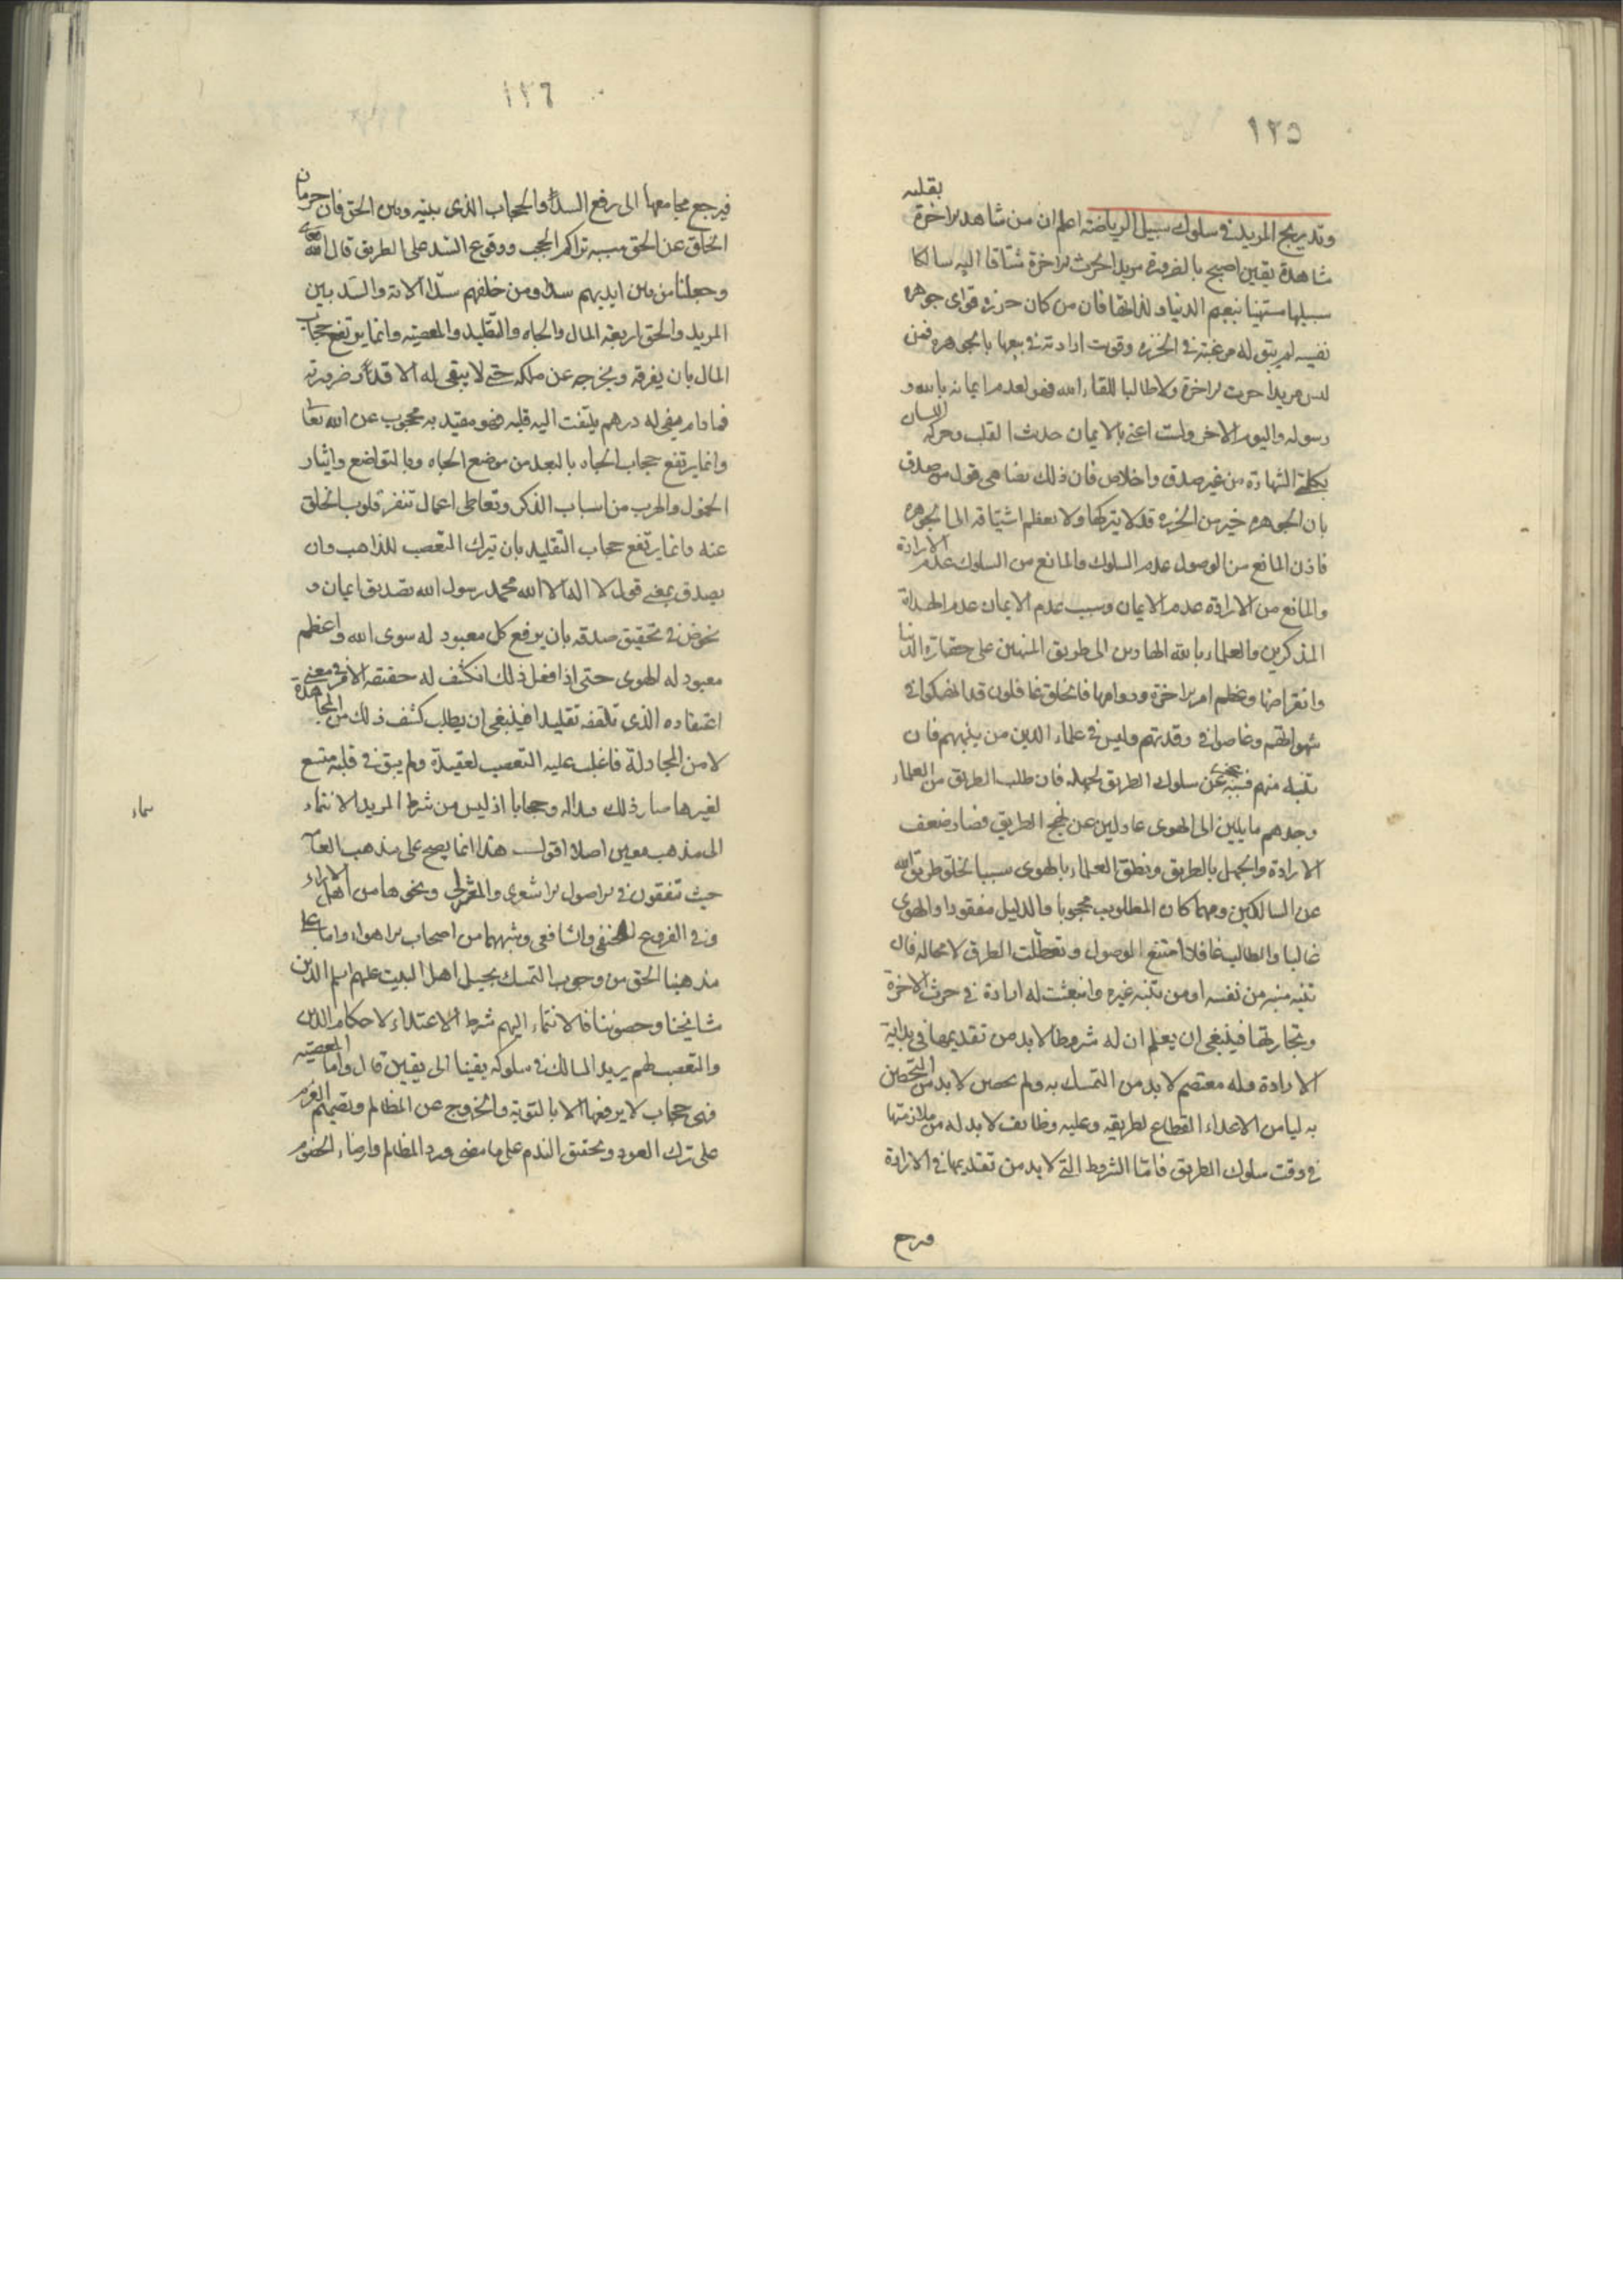 ١٢٥
وتدريج المريد في سلوك سبيل الرياضة اعلم ان من شاهد الاخرة بقلبه
مشاهدة يقين اصبح بالضرورة مريدا لحرث الاخرة مشتاقا اليه سالكا
سبيلها مستهينا بنعيم الدنيا ولذاتها فان من كان خرزه فراى جوهره
نفيسه لم يبق له رغبة في الخرزه وقويت ارادته في بيعها بالجوهره فمن
ليس مريدا حرث الاخرة ولا طالبا للقاء الله فهو لعدم ايمانه بالله و
رسوله واليوم الاخر ولست اعني بالايمان حدث القلب وحركه اللسان
بكلمة الشهادة من غير صدق واخلاص فان ذلك يضاهي قول من صدق
بان الجوهره خير من الخرزه قد لا يتركها ولا يعظم اشتياقه الى الجوهره
فاذن المانع من الوصول عدم السلوك والمانع من السلوك عدم الارادة
والمانع من الارادة عدم الايمان وسبب عدم الايمان عدم الهداة
المذكرين والعلماء بالله الهادين الى طريق المنبهين على حقارة الدنيا
وانقراضها وعظم امر الاخرة ودوامها فالخلق غافلون قد انهمكوا في
شهواتهم وغاصوا في رقدتهم وليس في علماء الدين من ينبههم فان
تنبه منهم متنبه عجز عن سلوك الطريق لجهله فان طلب الطريق من العلماء
وجدهم مايلين الى الهوى عادلين عن نهج الطريق فصار ضعف
الارادة والجهل بالطريق ونطق العلماء بالهوى سببا لخلو طريق الله
عن السالكين ومهما كان المطلوب محجوبا والدليل مفقودا والهوى
غالبا والطالب غافلا امتنع الوصول وتعطلت الطرق لا محاله فان
تنبه متنبه من نفسه او من تنبيه غيره وانبعثت له ارادة في حرث الاخرة
وتجارتها فينبغي ان يعلم ان له شروطا لابد من تقديمها في بداية
الارادة وله معتصم لابد من التمسك به وله حصن لابد من التحصن
به ليامن الاعداء القطاع لطريقه وعليه وظائف لابد له من ملازمتها
في وقت سلوك الطريق فاما الشروط التي لابد من تقديمها في الارادة
فيرجع
١٢٦
فيرجع مجامعها الى رفع السد والحجاب الذي بينه وبين الحق فان حرمان
الخلق عن الحق سببه تراكم الحجب ووقوع السد على الطريق قال الله تعالى
وجعلنا من بين ايديهم سدا ومن خلفهم سدا الاية والسد بين
المريد والحق اربعة المال والجاه والتقليد والمعصيه وانما يرتفع حجاب
المال بان يفرقه ويخرجه عن ملكه حتى لا يبقى له الا قدر ضرورته
فما دام يبقى له درهم يلتفت اليه قلبه فهو مقيد به محجوب عن الله تعالى
وانما يرتفع حجاب الجاه بالبعد من موضع الجاه وبالتواضع وايثار
الخمول والهرب من اسباب الذكر وتعاطي اعمال تنفر قلوب الخلق
عنه وانما يرتفع حجاب التقليد بان يترك التعصب للمذاهب وان
يصدق بمعنى قول لا اله الا الله محمد رسول الله تصديق ايمان و
يخوض في تحقيق صدقه بان يرفع كل معبود له سوى الله واعظم
معبود له الهوى حتى اذا فعل ذلك انكشف له حقيقة الامر في معنى
اعتقاده الذي تلقفه تقليدا فينبغي ان يطلب كشف ذلك من المجاهدة
لا من المجادلة فان غلب عليه التعصب لعقيدة ولم يبق في قلبه متسع
لغيرها صار ذلك قيدا له وحجابا اذ ليس من شرط المريد الانتماء
الى مذهب معين اصلا اقول هذا انما يصح على مذهب العامة
حيث تفرقون في الاصول الاشعري والمعتزلي ونحوهما من اهل الاراء
وفي الفروع الحنفي والشافعي وشبههما من اصحاب الاهواء واما على
مذهبنا الحق من وجوب التمسك بحبل اهل البيت عليهم السلم الذين
مشايخنا وحصوننا فالانتماء اليهم شرط الاهتداء لاحكام الدين
والتعصب لهم يزيد السالك في سلوكه يقينا الى يقين قال واما المعصيه
فهي حجاب لا يرفعها الا بالتوبة والخروج عن المظالم وتصميم العزم
على ترك العود وتحقيق الندم على ما مضى ورد المظالم وارضاء الخصوم